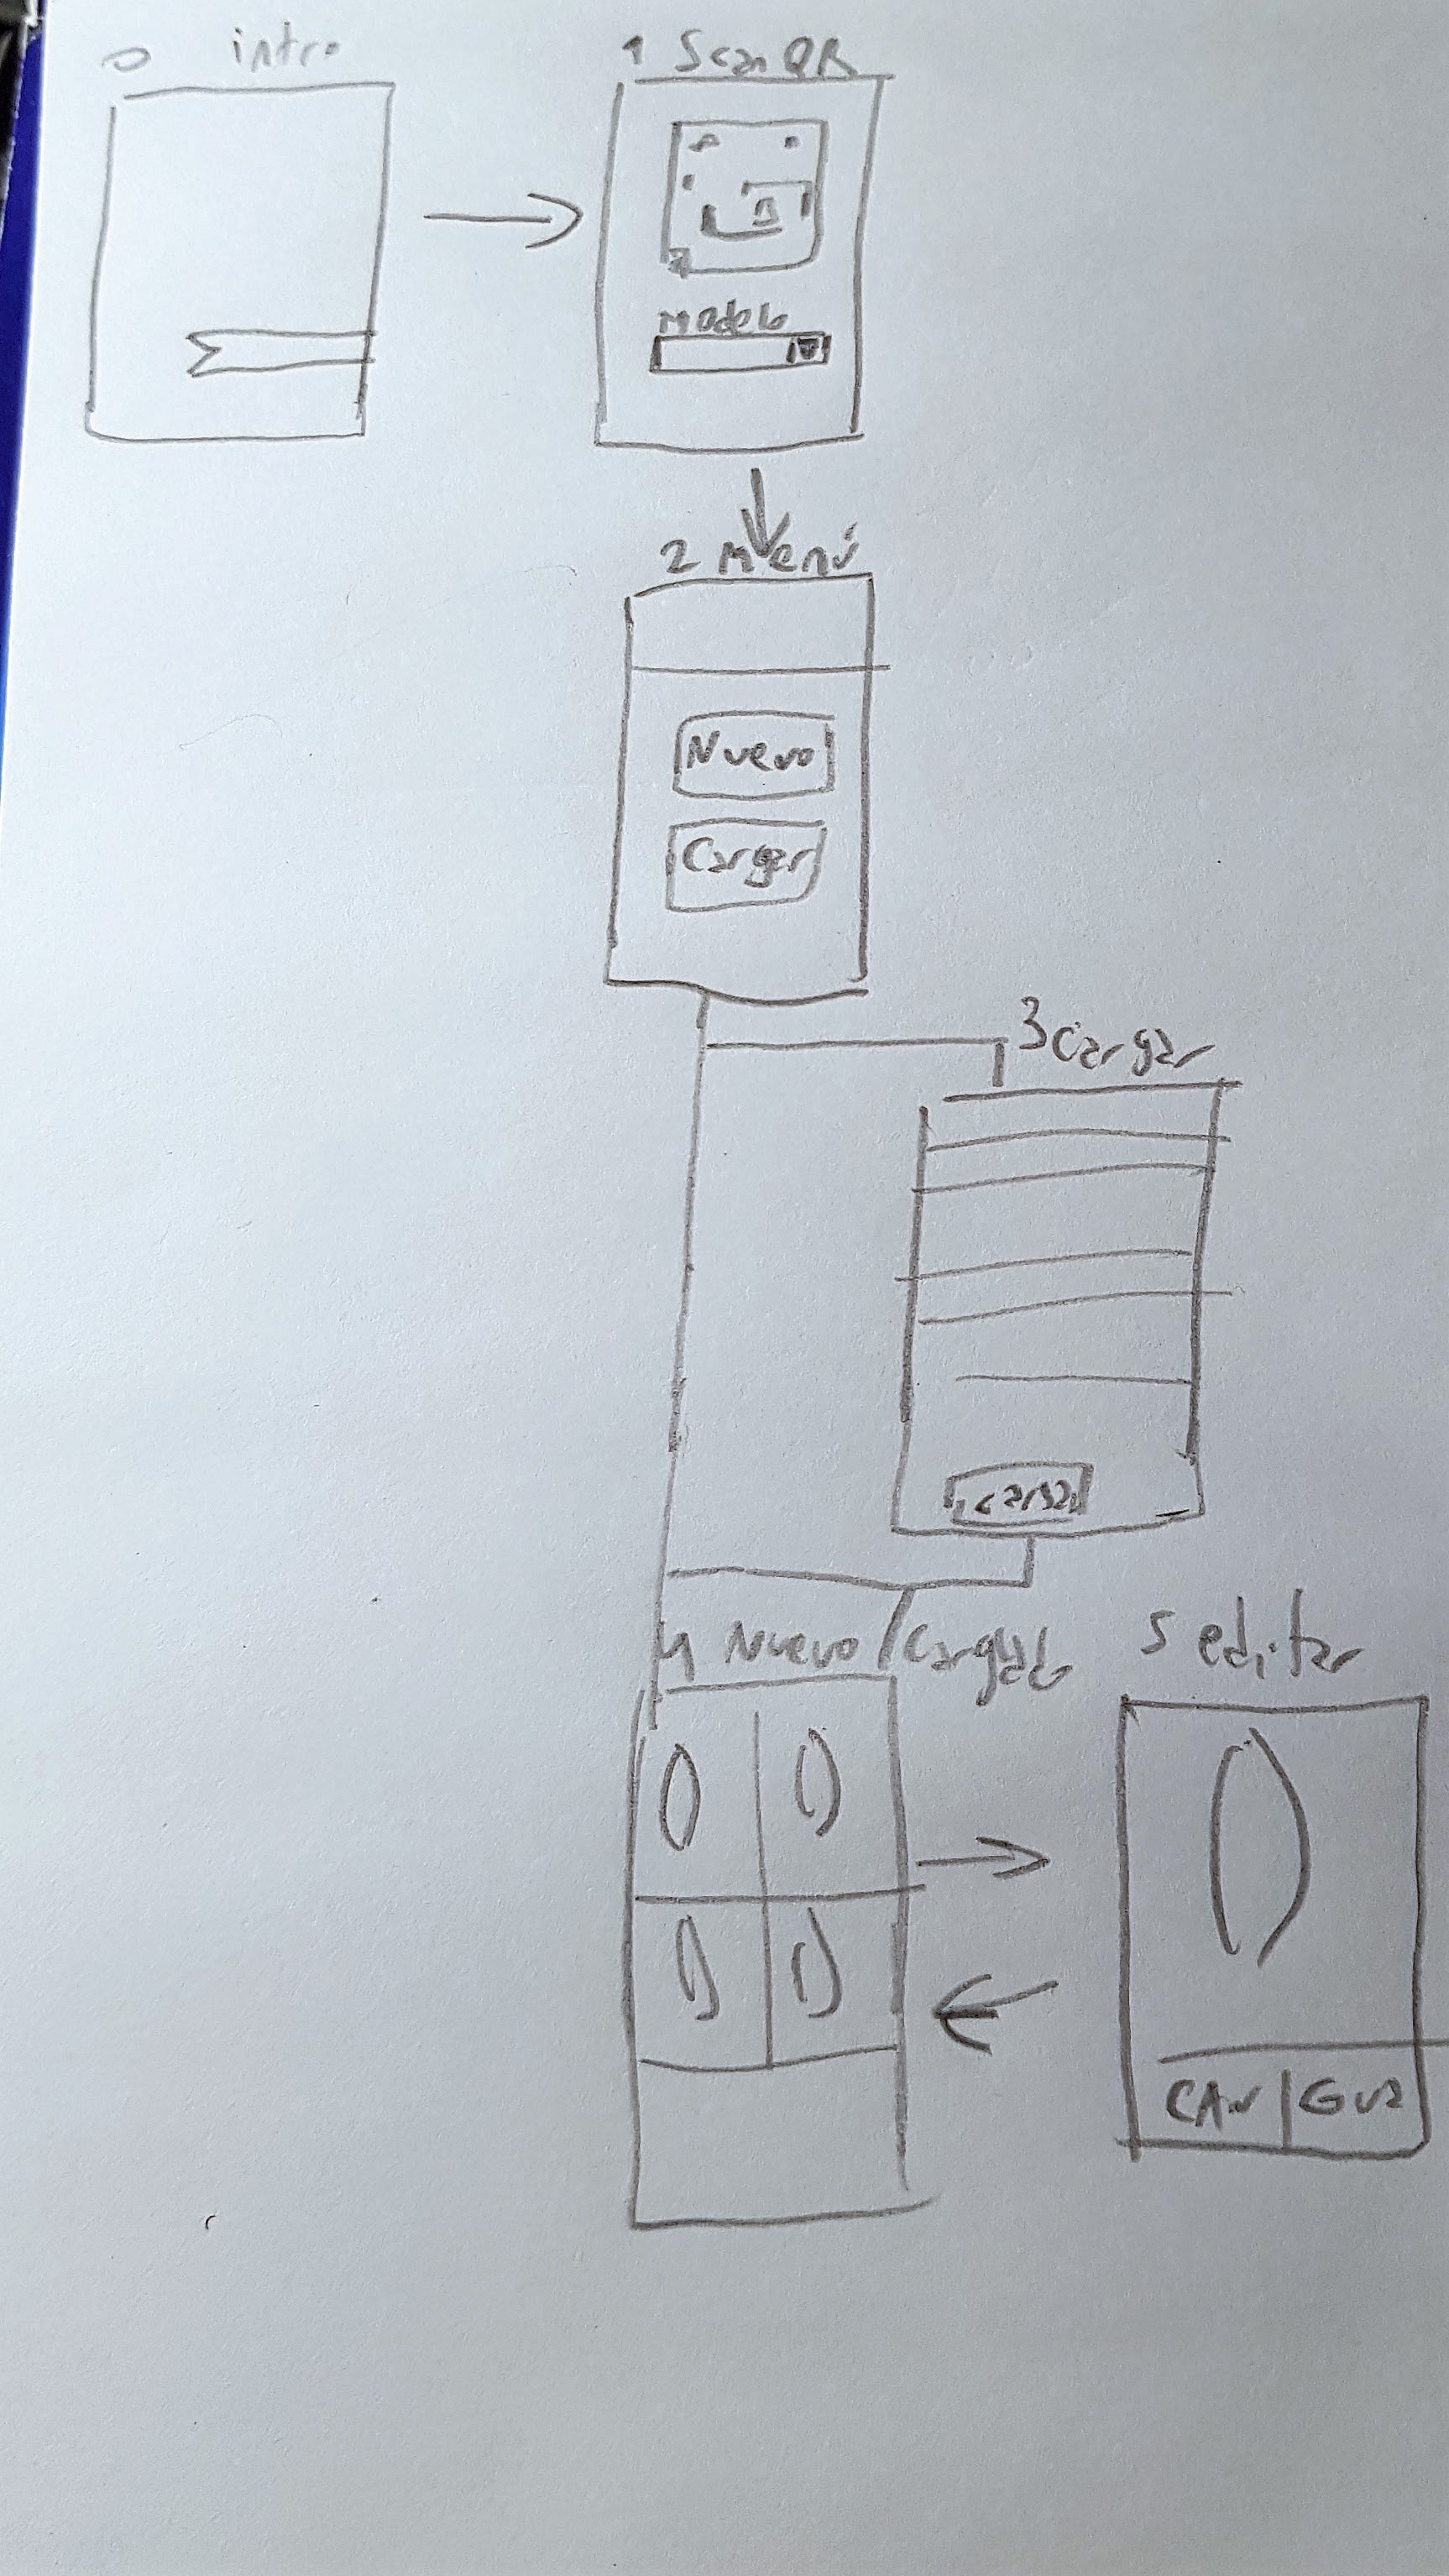 0 intro
1 Scan QR
Modelo
2 Menú
Nuevo
Cargar
3 Cargar
carga
4 Nuevo / Cargado
5 editar
CAN | GUA